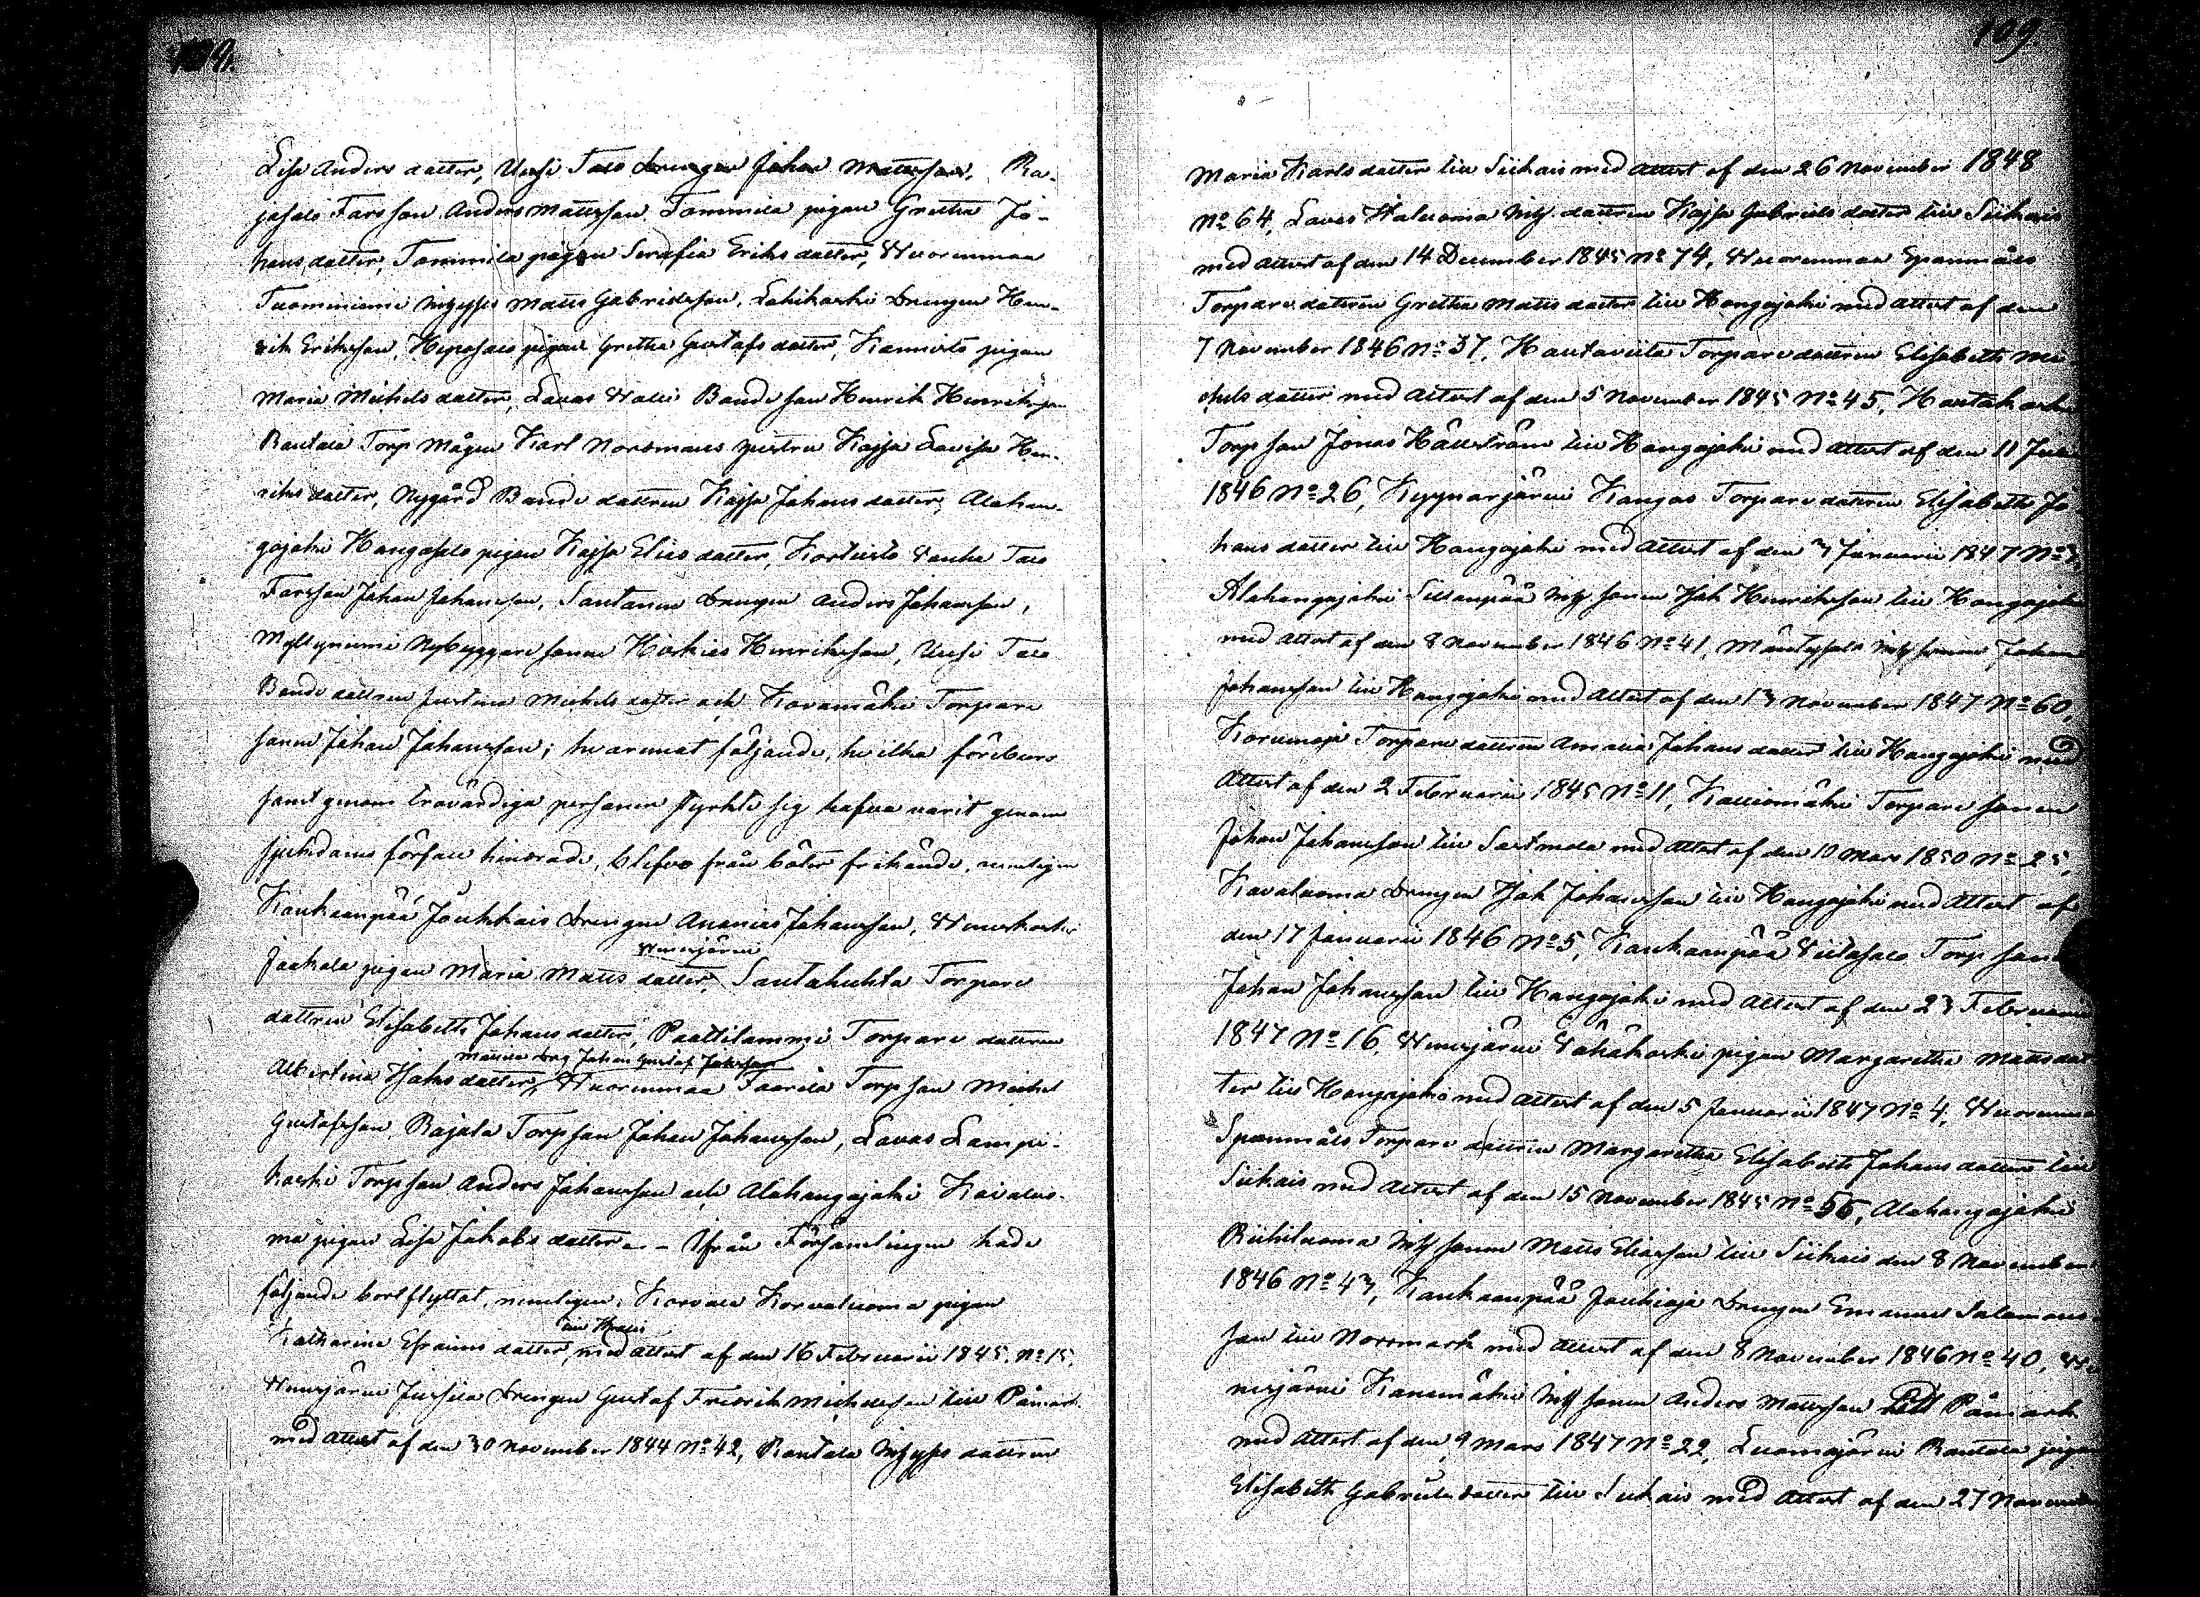 109.
Lisa Anders dotter, Uusi Talo Drengen Johan Mattsson, Ra-
jasalo Farsson Anders Mattsson Tommila pigan Gretha Jo-
hans dotter, Tommila pigan Serafia Eriks dotter, Wuorenmaa
Tuominiemi Inhyses Matts Gabrielsson, Lahikoski Drengen Hen-
rik Eriksson, Heposalo pigan Gretha Gustafs dotter, Kannisto pigan
Maria Michels dotter, Lavas Walli Bonde son Henrik Henriksson
Rautala Torp Mågen Karl Nordmans hustru Kajsa Lovisa Hen-
riks dotter, Nygård Bonde dottren Kajsa Johans dotter, Alahon-
gojoki Hongosalo pigan Kajsa Elias dotter, Kortisto Vanha Talo
Farsson Johan Johansson, Santanen Drengen Anders Johansson,
Myllyniemi Nybyggare sonen Hiskias Henriksson, Uusi Talo
Bonde dottren Justina Michels dotter och Kovamäki Torpare
sonen Johan Johansson; hvaremot följande, hvilka föreburo
samt genom trovärdiga personer styrkte sig hafva varit genom
sjukdoms förfall hindrade, blefvo från böter frikände, nemligen
Kankaanpää Jouhkais Drengen Ananias Johansson,
Jaakola pigan Maria Matts dotter, Santahuhta Torpare
dottren Elisabeth Johans dotter, Paattilammi Torpare dottren
Albertina Isaks dotter, Wuorenmaa Faarila Torpson Michel
Gustafsson, Rajala Torpson Johan Johansson, Lavas Lampi-
koski Torpson Anders Johansson och Alahongojoki Kaivaluo-
ma pigan Lisa Jakobs dotter. – Ifrån Församlingen hade
följande bortflyttat, nemligen: Korvalu Korvaluoma pigan
Katharina Efraims dotter, med attest af den 16 Februarii 1845 No 15,
Wenesjärvi Jussila Drengen Gustaf Fredrik Michelsson till Påmark
med attest af den 30 November 1844 No 42, Rautala Inhyses dottren
109.
Maria Karls dotter till Siikais med attest af den 26 November 1848
No 64, Lavas Haluoma Inhs dottren Kajsa Gabriels dotter till Siikais
med attest af den 14 December 1845 No 74, Wuorenmaa Epanmåls
Torpare dottren Gretha Matts dotter till Hongojoki med attest af den
7 November 1846 No 37, Hautaviita Torpare dottren Elisabeth Mi-
chels dotter med attest af den 5 November 1845 No 45, Hautakoski
Torpson Jonas Hällström till Hongojoki med attest af den 11
1846 No 26, Kyynärjärvi Kangas Torpare dottren Elisabeth Jo-
hans dotter till Hongojoki med attest af den 3 Januarii 1847 No 3,
Alahongojoki Sillanpää Inhs sonen Isak Henriksson till Hongojoki
med attest af den 8 November 1846 No 41, Mäntysalo Inhs sonen Johan
Johansson till Hongojoki med attest af den 13 November 1847 No 60,
Korvenoja Torpare dottren Amalia Johans dotter till Hongojoki med
attest af den 2 Februarii 1845 No 11, Kalliomäki Torpare sonen
Johan Johansson till Sastmola med attest af den 10 Mars 1850 No 25,
Kavaluoma Drengen Isak Johansson till Hongojoki med attest af
den 17 Januarii 1846 No 5, Kankaanpää Viitasalo Torp sonen
Johan Johansson till Hongojoki med attest af den 23 Februarii
1847 No 16, Wenesjärvi Vähäkoski pigan Margaretha Matts dot-
ter till Hongojoki med attest af den 5 Januarii 1847 No 4, Wuorenmaa
Torpare dottren Margaretha Elisabeth Johans dotter till
Siikais med attest af den 15 November 1845 No 55, Alahongojoki
Riihiluoma Inhs sonen Matts Eliasson till Siikais den 8 November
1846 No 43, Kankaanpää Joukioja Drengen Emanuel Salomons-
son till Norrmark med attest af den 8 November 1846 No 40, We-
nesjärvi Kanamäki Inhs sonen Anders Mattsson till Påmark
med attest af den 9 Mars 1847 No 22, Luomajärvi Rautala pigan
Elisabeth Gabriels dotter till Siikais med attest af den 27 November